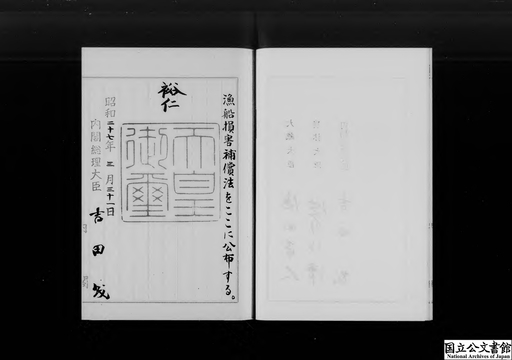 漁船損害補償法をここに公布する。
裕仁
天皇
御璽
昭和二十七年三月三十一日
内閣総理大臣 吉田茂
国立公文書館
National Archives of Japan